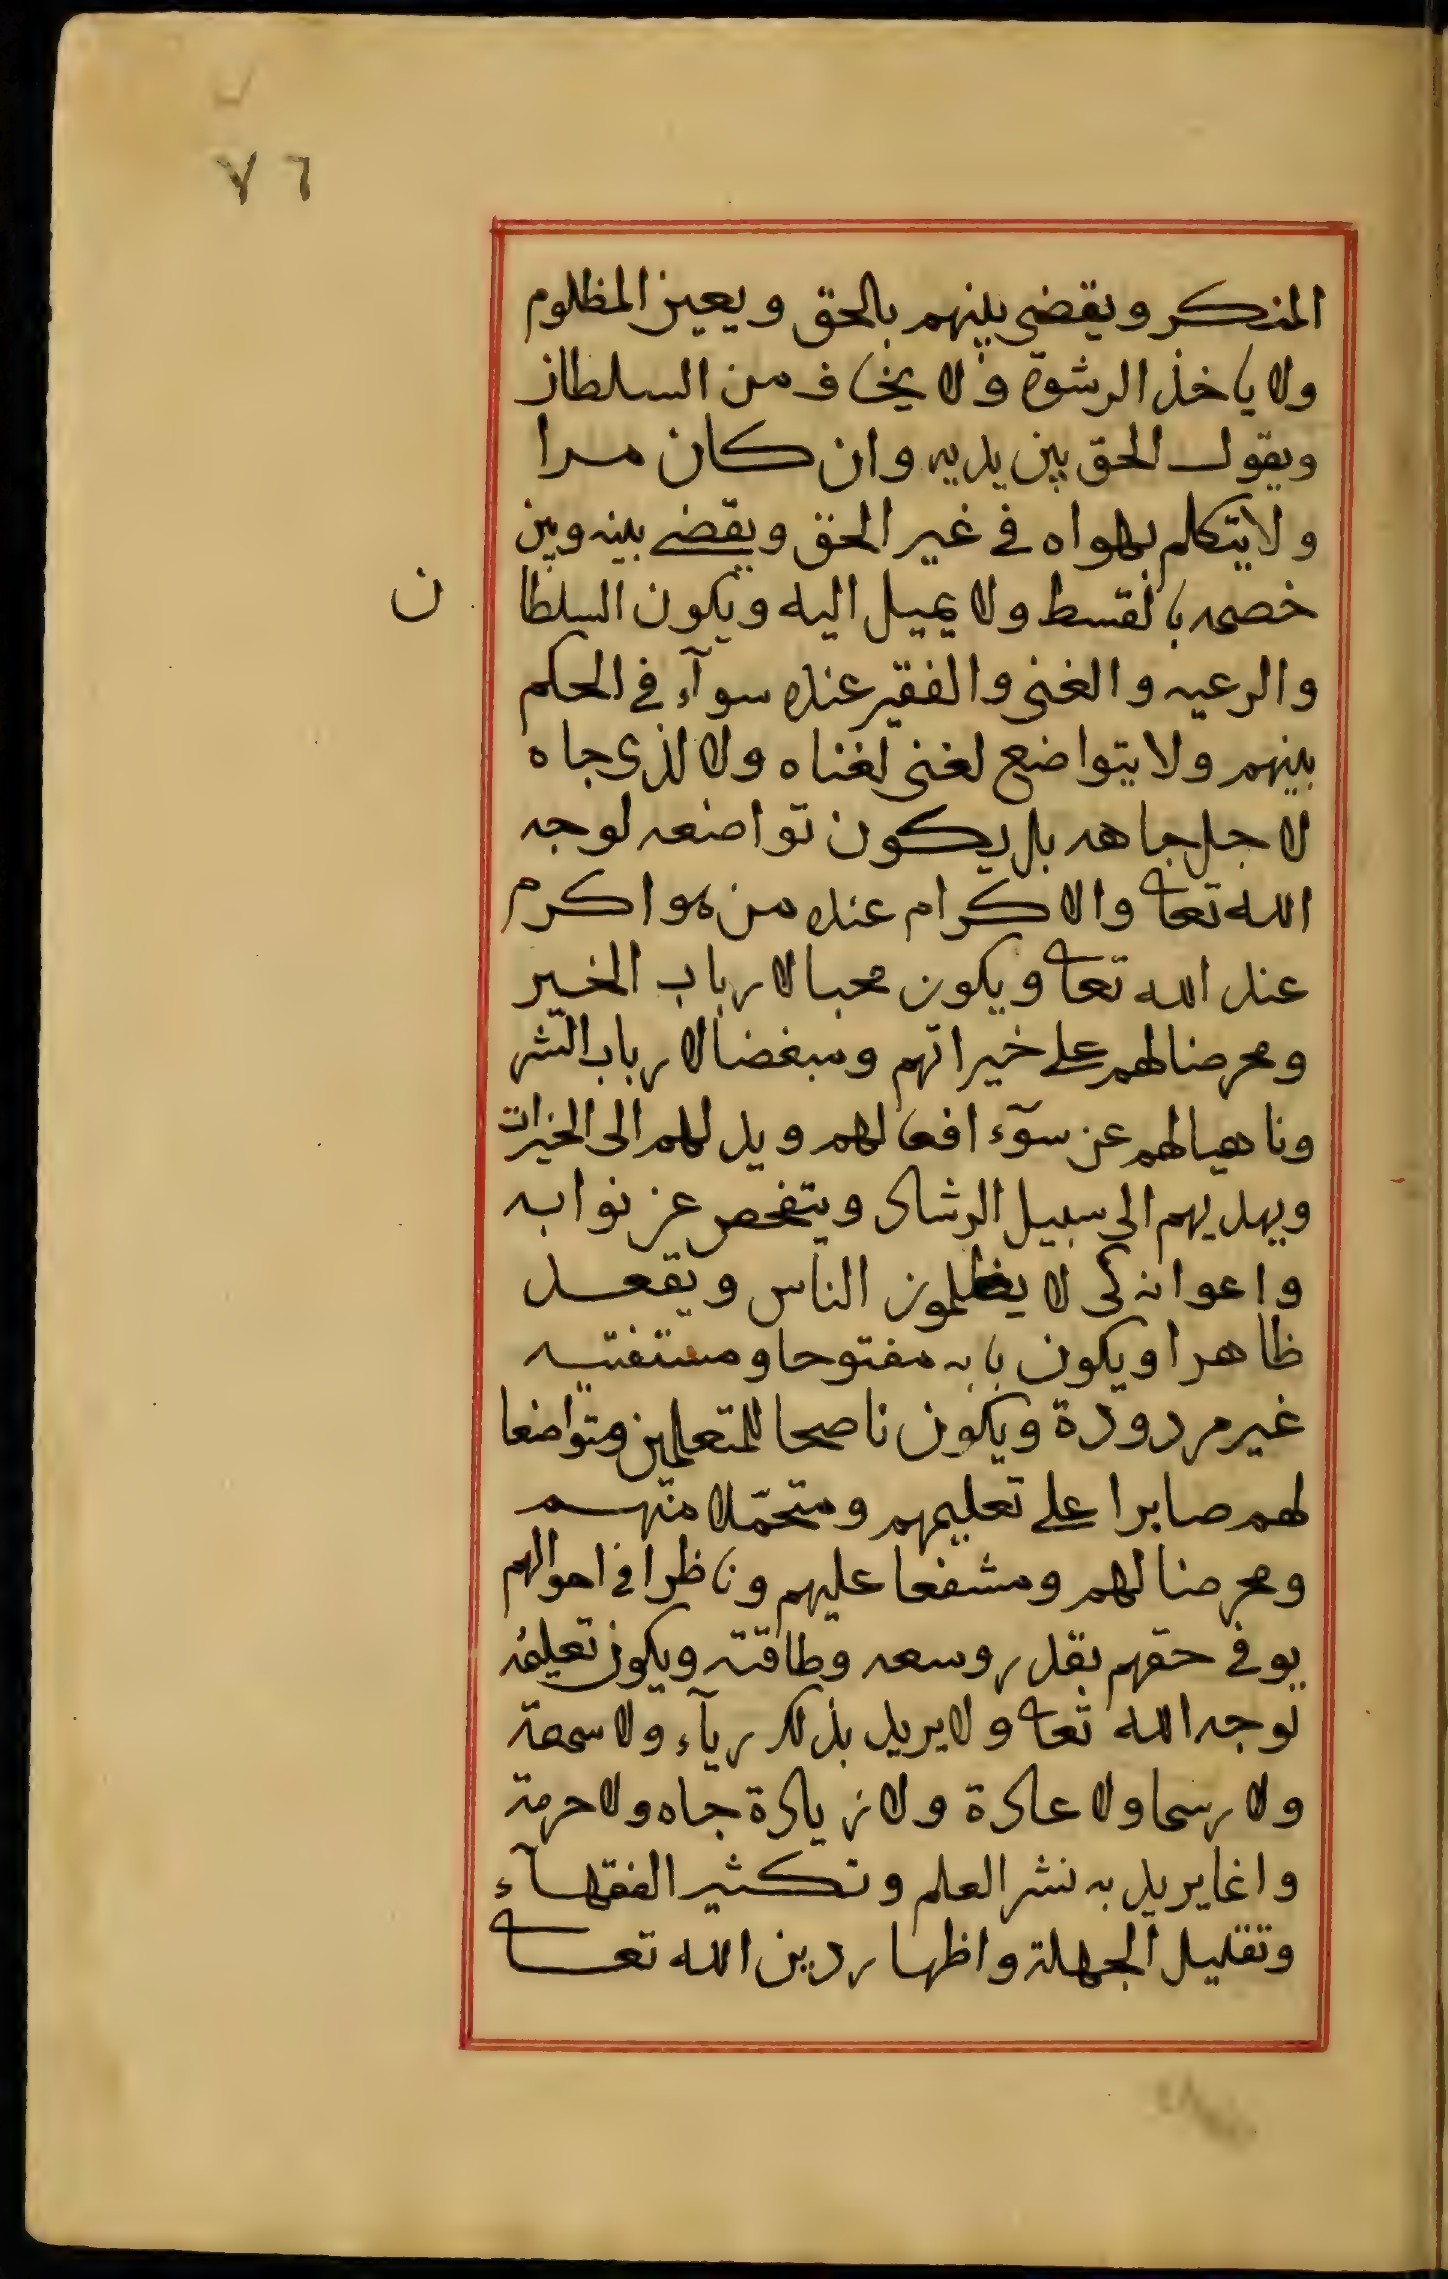 ٧٦
المنكر ويقضى بينهم بالحق ويعين المظلوم
ولا ياخذ الرشوة ولا يخاف من السلطان
ويقول الحق بين يديه وان كان مرا
ولا يتكلم بهواه في غير الحق ويقضي بينه وبين
خصمه بالقسط ولا يميل اليه ويكون السلطا ن
والرعيه والغنى والفقير عنده سوآء في الحكم
بينهم ولا يتواضع لغنى لغناه ولا لذى جاه
لا جل جاهه بل يكون تواضعه لوجه
الله تعا والاكرام عنده من هو اكرم
عند الله تعا ويكون محبا لارباب الخير
ومحرضا لهم على خيراتهم ومبغضا لارباب الشر
وناهيا لهم عن سوٓء افعالهم ويدلهم الى الخيرات
ويهديهم الى سبيل الرشاد ويتفحص عن نوابه
واعوانه كى لا يظلمون الناس ويقعد
ظاهرا ويكون بابه مفتوحا ومستفتيه
غير مردودة ويكون ناصحا للمتعلمين ومتواضعا
لهم صابرا على تعليمهم ومتحمّلا منهم
ومحرضا لهم ومشفعا عليهم وناظرا في احوالهم
يوفي حقهم بقدر وسعه وطاقته ويكون تعليمُه
لوجه الله تعا ولا يريد بذلك ريآء ولا سمعة
ولا رسما ولا عادة ولا زيادة جاه ولا حرمة
وانما يريد به نشر العلم وتكثير الفقهآء
وتقليل الجهلة واظهار دين الله تعا